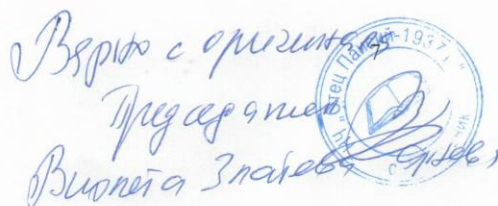 Вярно с оригинала
Председател
Виолета Златева
НЧ "Отец Паисий-1937г."